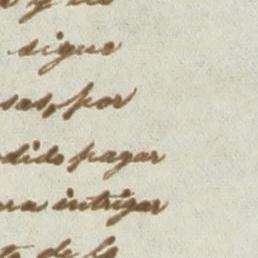 y
sigue
sas, por
dido pagar
ra intrigar
de